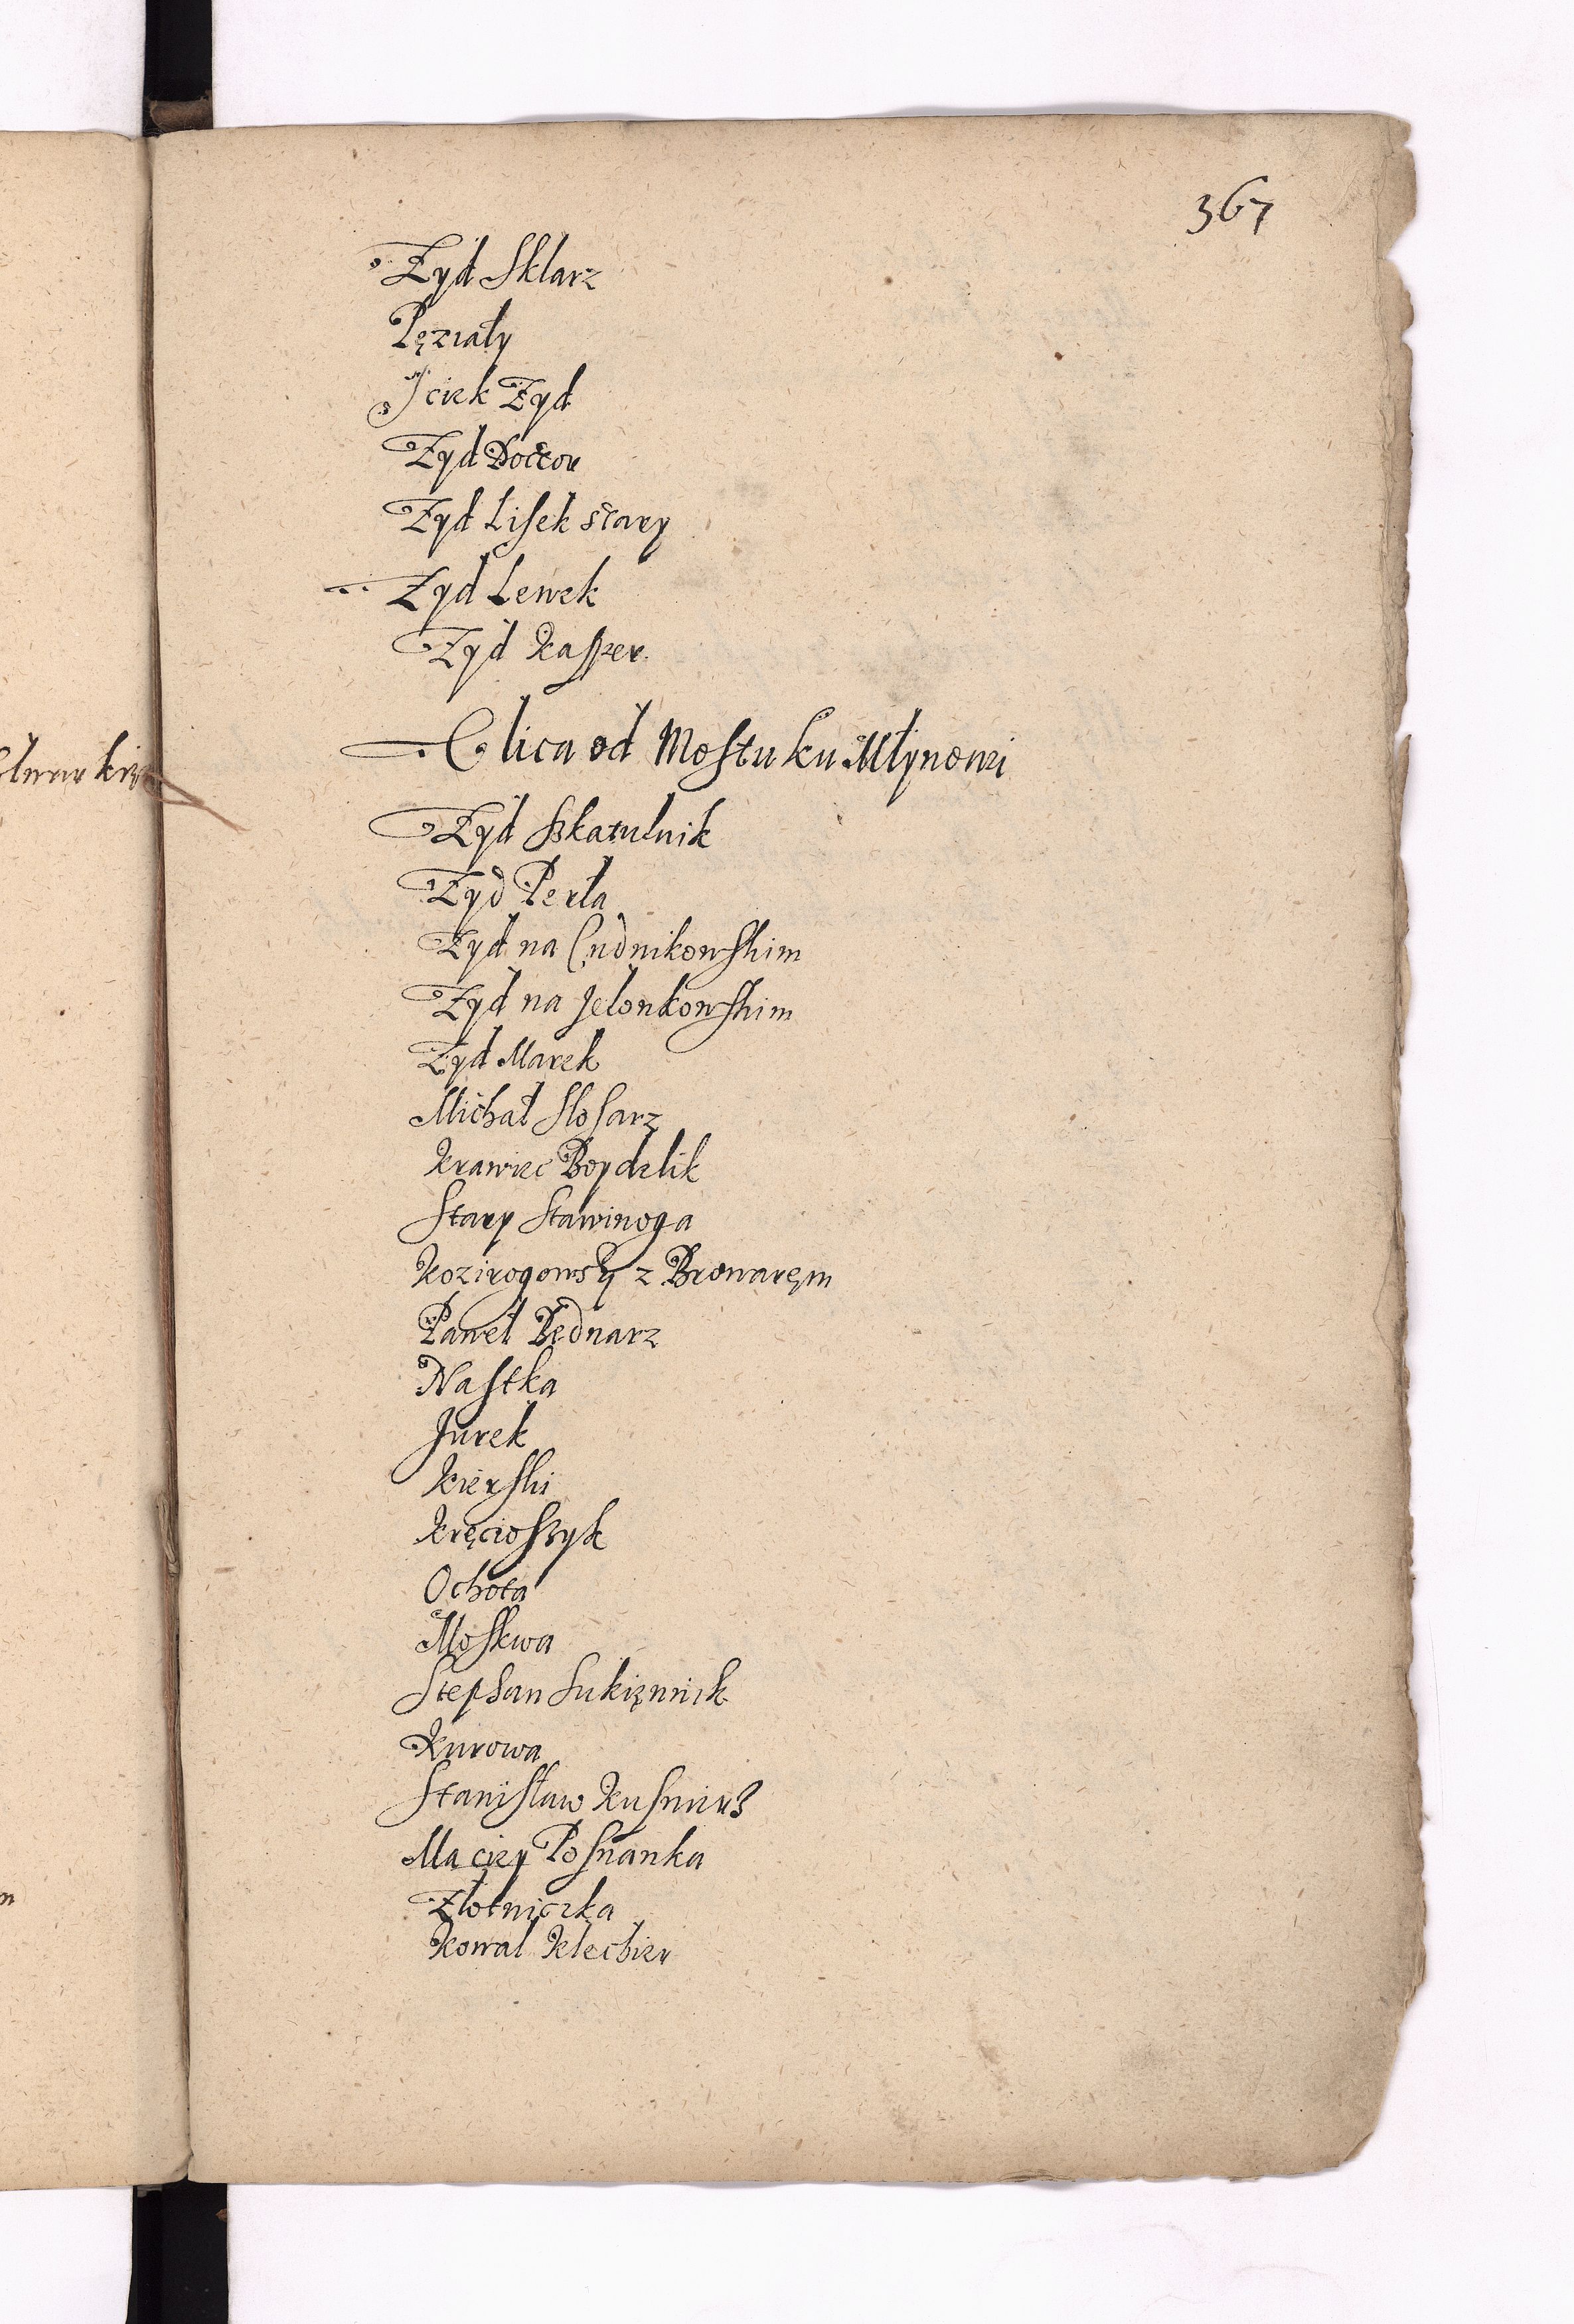 367
Zyd Sklarz
Pęziały
Jciek Zyd
Zyd Doctor
Zyd Lisek stary
Zyd Lewek
Zyd Kasper
Vlica od Mostu ku Młynowi
Zyd Szkatulnik
Zyd Perła
Zyd na Cudnikowskim
Zyd na Jelonkowskim
Zyd Marek
Michał Slosarz
Krawiec Boydelik
Stary Stawinoga
Kozirogowsky z Browaręm
Paweł Bednarz
Nastka
Jurek
Kierski
Kręcioszyk
Ochota
Moskwa
Stephan Sukięnnick
Kurowa
Stanisław Kusnierz
Maciey Posnanka
Złotniczka
Kowal Klechier